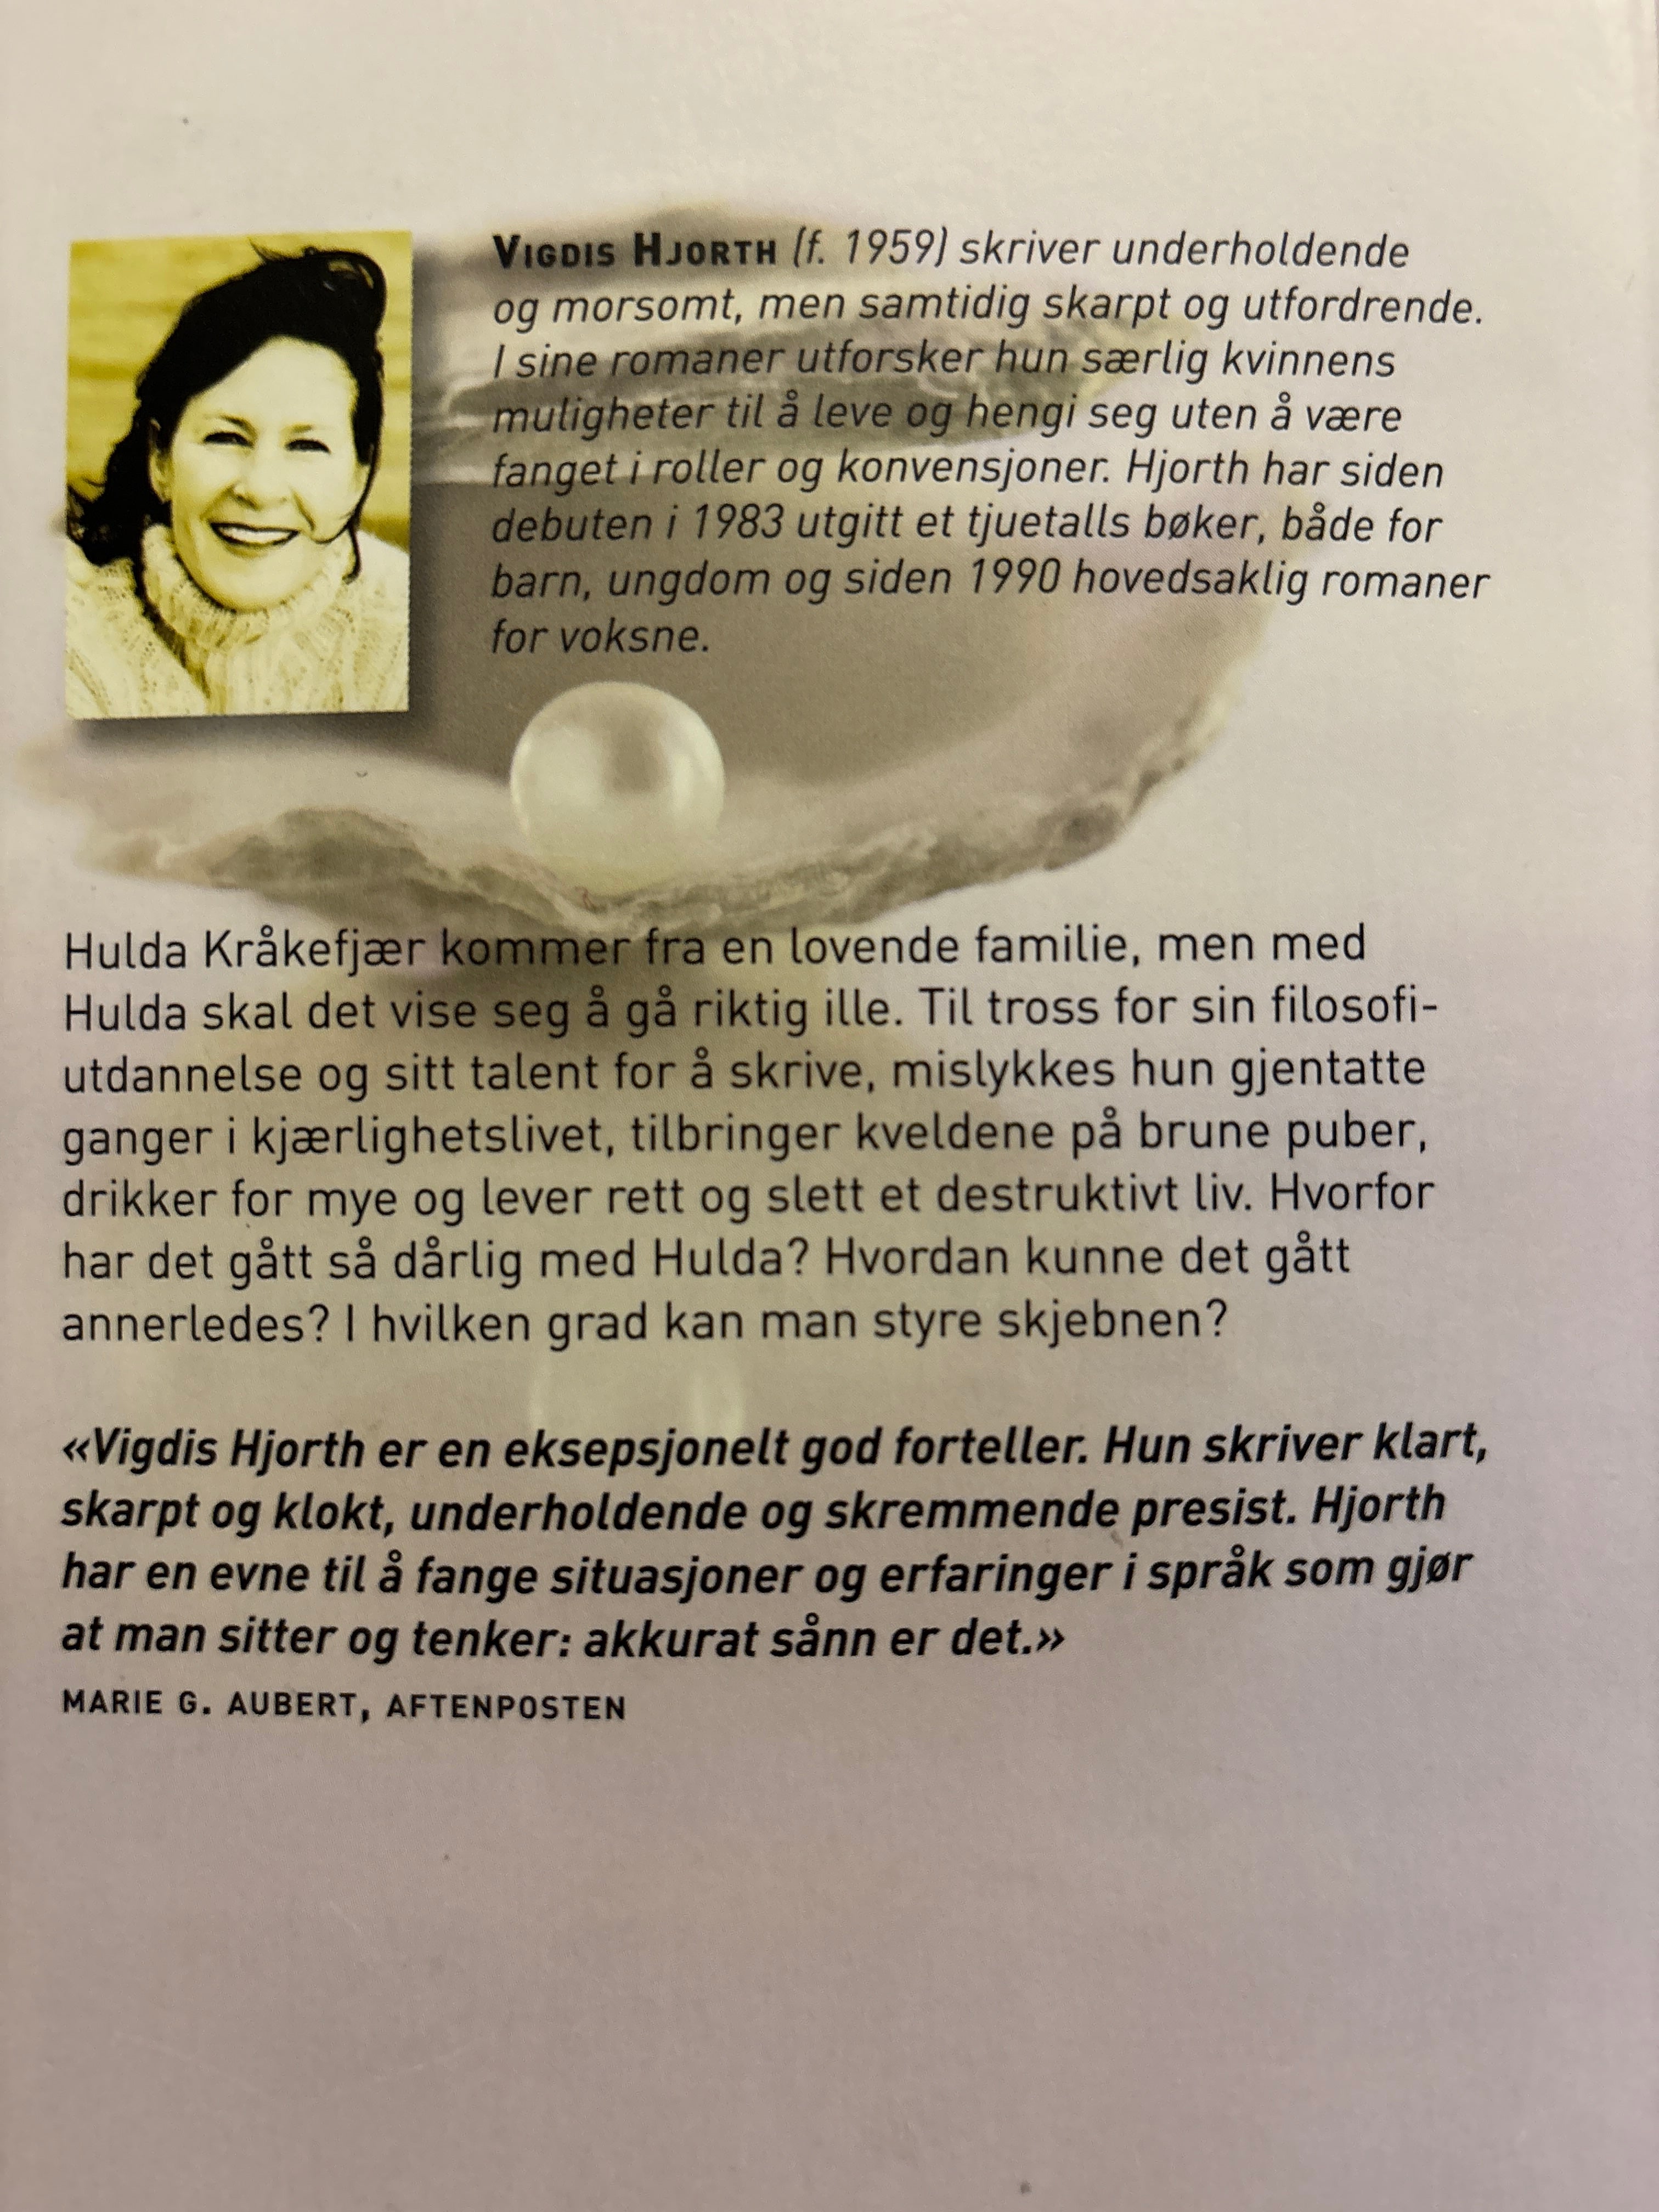 VIGDIS HJORTH (f. 1959) skriver underholdende
og morsomt, men samtidig skarpt og utfordrende.
I sine romaner utforsker hun særlig kvinnens
muligheter til å leve og hengi seg uten å være
fanget i roller og konvensjoner. Hjorth har siden
debuten i 1983 utgitt et tjuetalls bøker, både for
barn, ungdom og siden 1990 hovedsaklig romaner
for voksne.
Hulda Kråkefjær kommer fra en lovende familie, men med
Hulda skal det vise seg å gå riktig ille. Til tross for sin filosofi-
utdannelse og sitt talent for å skrive, mislykkes hun gjentatte
ganger i kjærlighetslivet, tilbringer kveldene på brune puber,
drikker for mye og lever rett og slett et destruktivt liv. Hvorfor
har det gått så dårlig med Hulda? Hvordan kunne det gått
annerledes? I hvilken grad kan man styre skjebnen?
«Vigdis Hjorth er en eksepsjonelt god forteller. Hun skriver klart,
skarpt og klokt, underholdende og skremmende presist. Hjorth
har en evne til å fange situasjoner og erfaringer i språk som gjør
at man sitter og tenker: akkurat sånn er det.»
MARIE G. AUBERT, AFTENPOSTEN